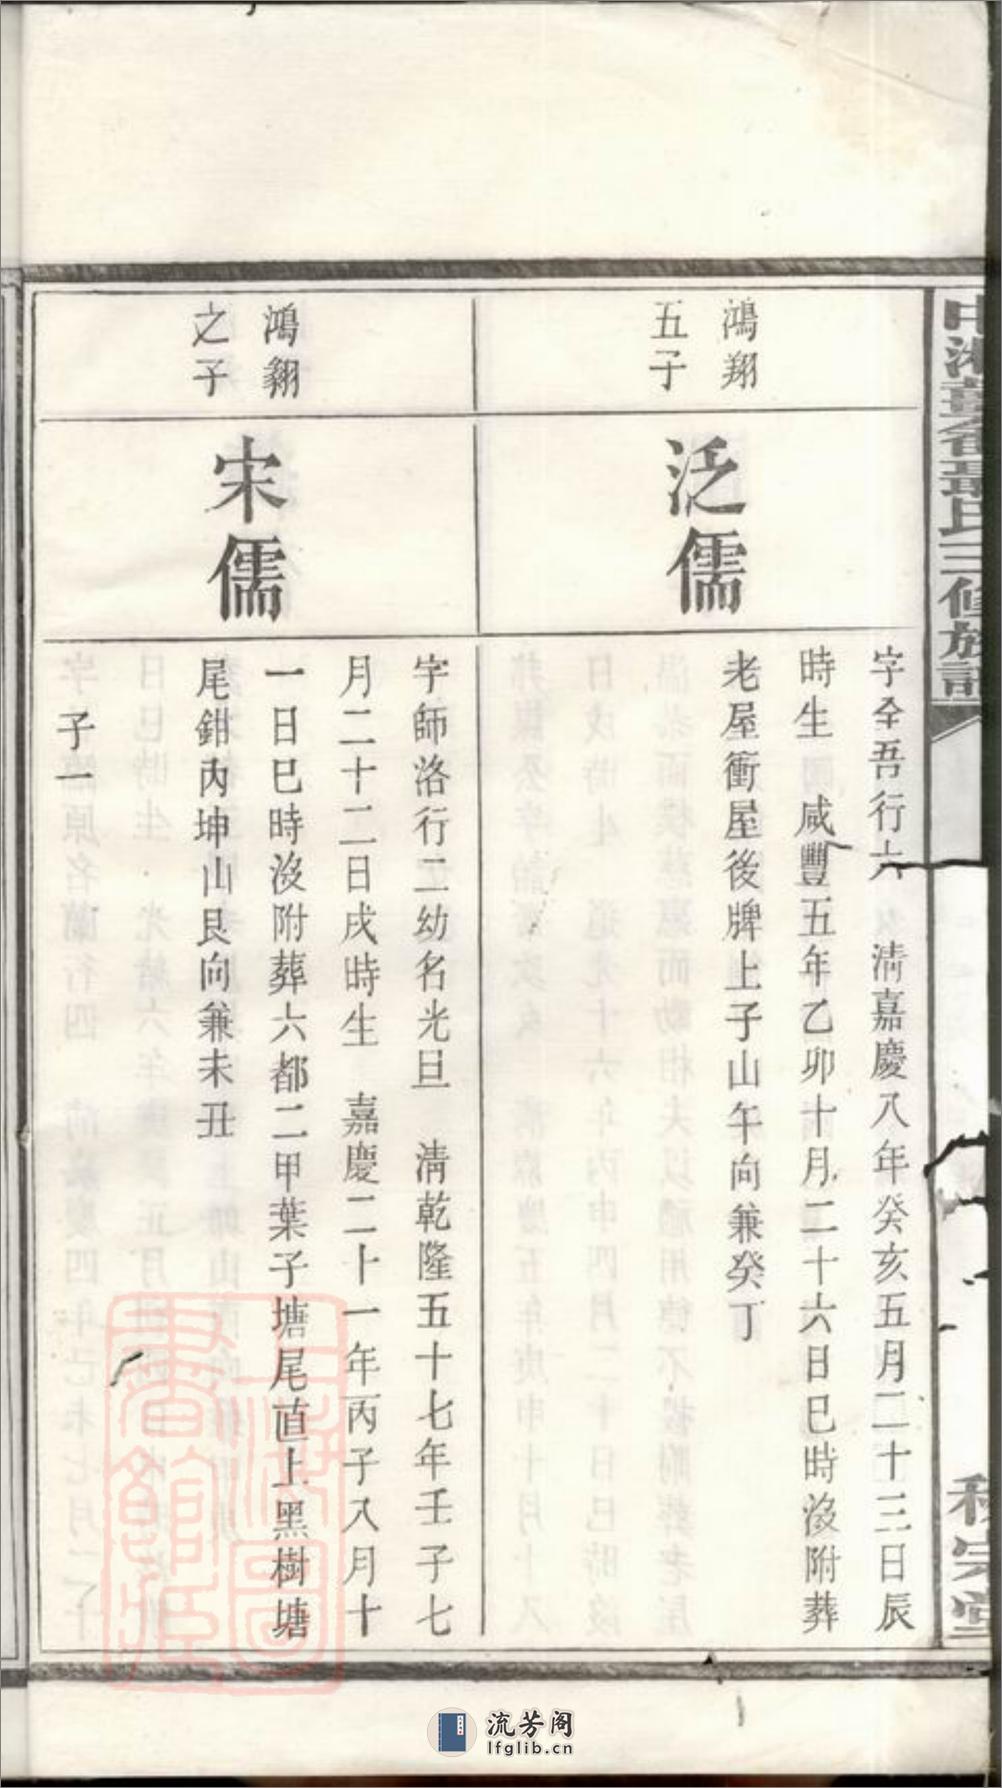 氏三修族譜
鴻翔
五子
泛儒
字全吾行六　清嘉慶八年癸亥五月二十三日辰
時生　咸豐五年乙卯十月二十六日巳時沒附葬
老屋衝屋後牌上子山午向兼癸丁
鴻翱
之子
宋儒
字師洛行二幼名光旦　清乾隆五十七年壬子七
月二十二日戌時生　嘉慶二十一年丙子八月十
一日巳時沒附葬六都二甲葉子塘尾直上黑樹塘
尾鉗內坤山艮向兼未丑
子一
流芳阁
lfglib.cn